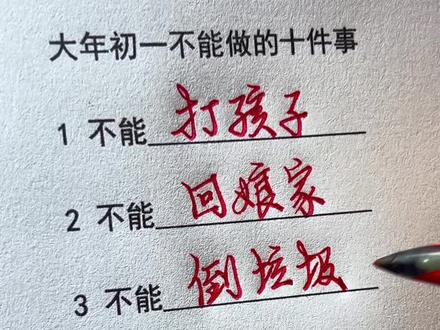 大年初一不能做的十件事
1 不能打孩子
2 不能回娘家
3 不能倒垃圾